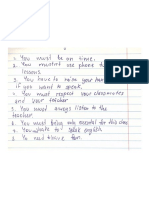 1. You must be on time.
2. You mustn't use phone
lessons.
3. You have to raise your
if you want to speak.
4. You must respect your classmates
and your teacher
5. You must always listen to the
teacher.
6. You must bring only essential for this class
7. You have to speak english.
8. You